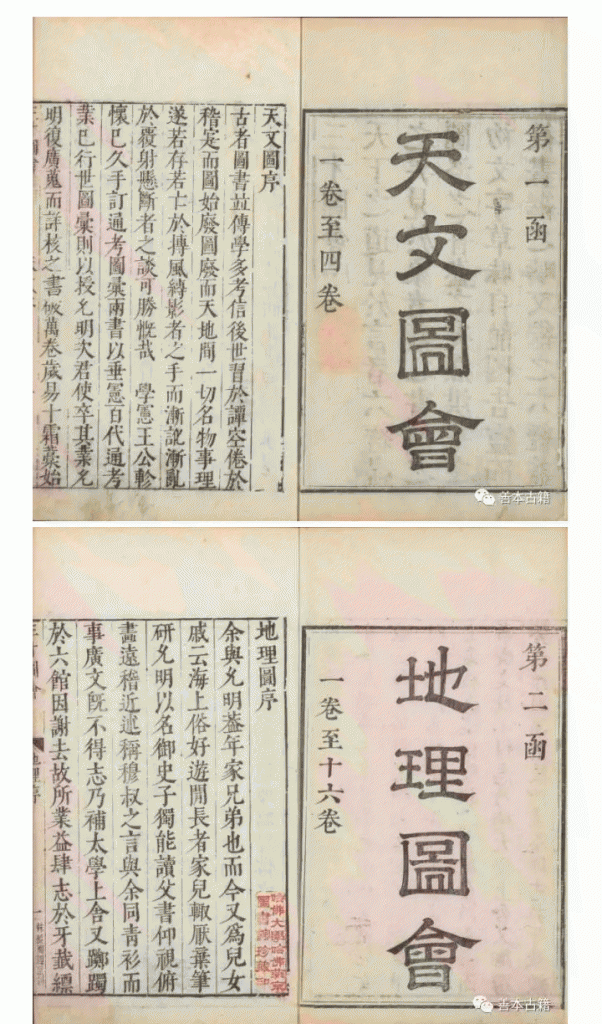 第一函
天文圖會
一卷至四卷
天文圖序
古者圖書並傳學多考信後世習於譚空倦於
稽寔而圖始廢圖廢而天地間一切名物事理
遂若存若亡於摶風縛影者之手而漸訛漸亂
於覆射懸斷者之談可勝慨哉 學憲王公軫
懷已久手訂通考圖彙兩書以垂憲百代通考
業已行世圖彙則以授允明次君使卒其業允
明復廣蒐而詳核之書破萬卷歲易十霜藁始
善本古籍
第二函
地理圖會
一卷至十六卷
地理圖序
余與允明益年家兄弟也而今又為兒女
戚云海上俗好遊閒長者家兒輙厭葉筆
研允明以名御史子獨能讀父書仰視俯
畵遠稽近述稱穆叔之言與余同青衫而
事廣文旣不得志乃補太學上舍又躑躅
於六館因謝去故所業益肆志於牙籤縹
地理序
哈佛大學哈佛燕京
圖書館珍藏印
善本古籍